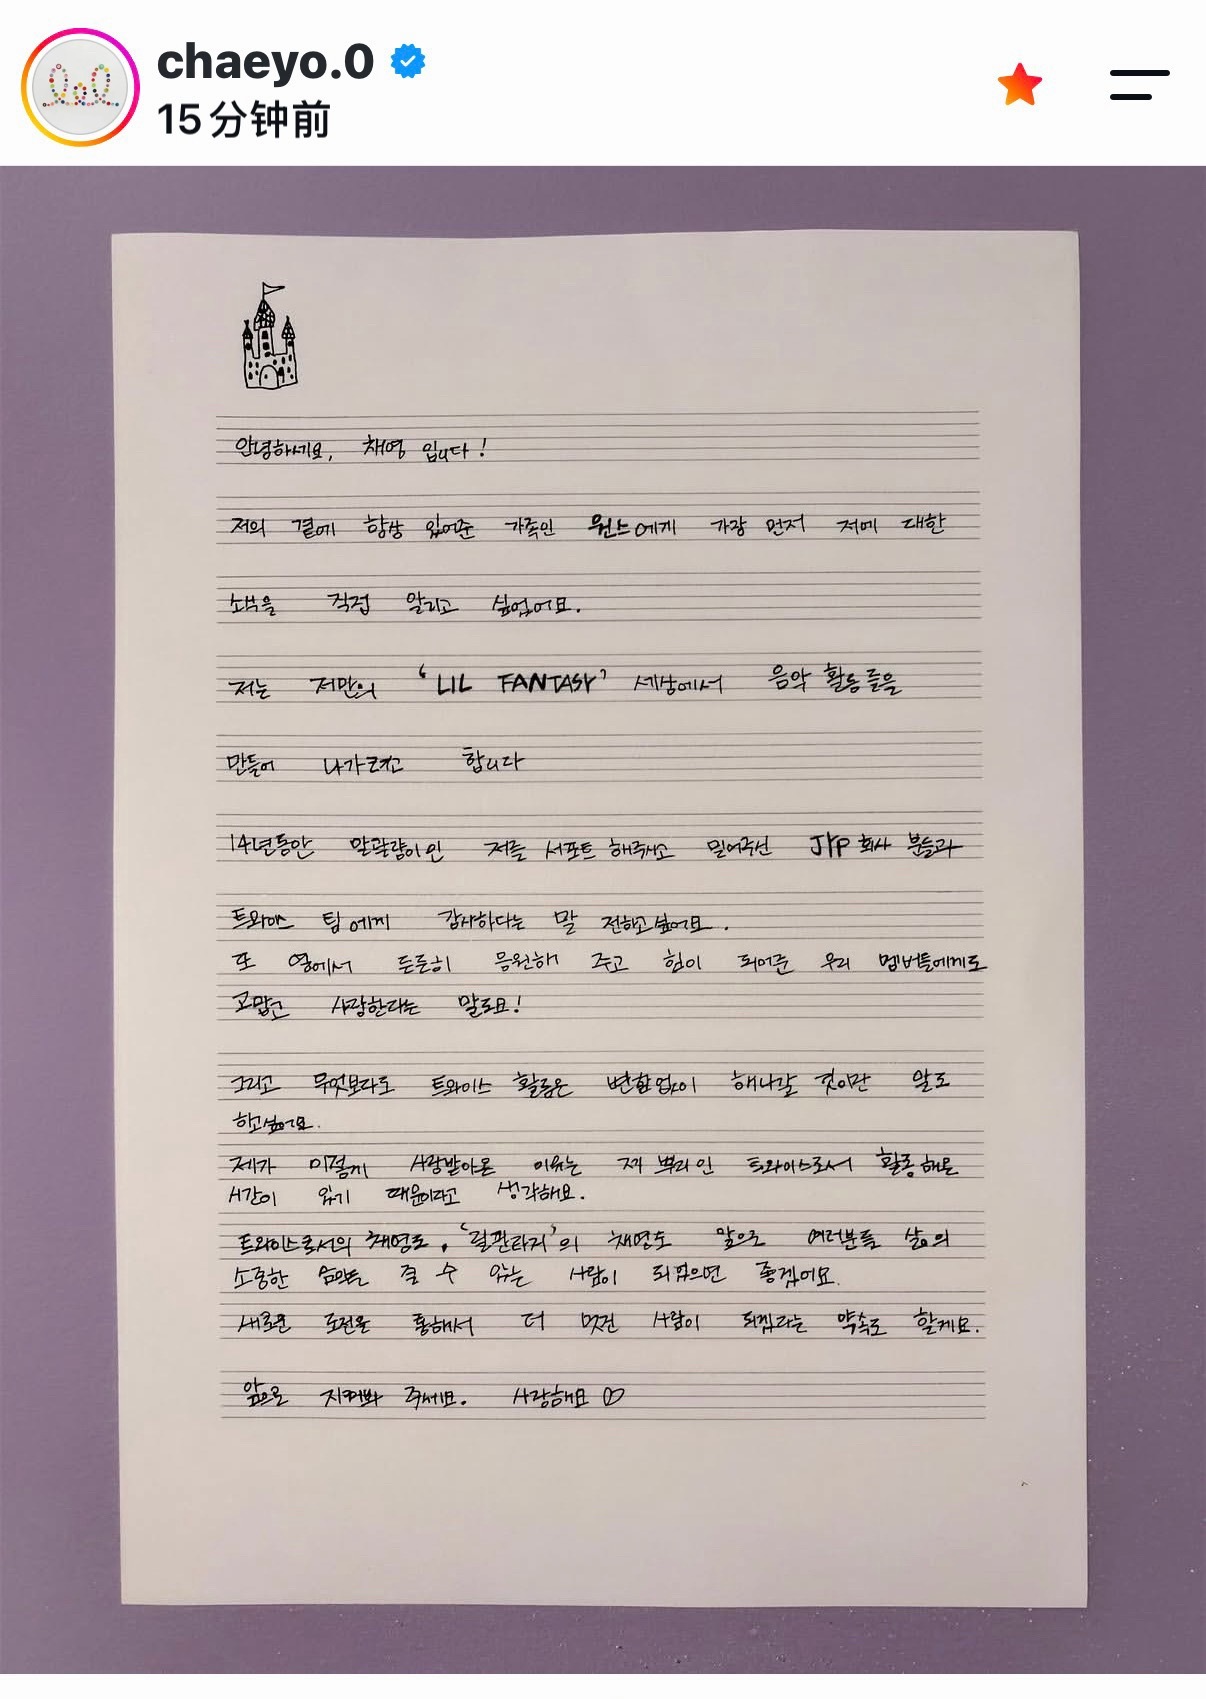 chaeyo.0
15分钟前
안녕하세요, 채영 입니다!
저의 곁에 항상 있어준 가족인 원스에게 가장 먼저 저에 대한
소식을 직접 알리고 싶었어요.
저는 저만의 'LIL FANTASY' 세상에서 음악 활동들을
만들어 나가려고 합니다
14년동안 말괄량이인 저를 서포트 해주시고 밀어주신 JYP 회사 분들과
트와이스 팀에게 감사하다는 말 전하고싶어요.
또 옆에서 든든히 응원해 주고 힘이 되어준 우리 멤버들에게도
고맙고 사랑한다는 말도요!
그리고 무엇보다도 트와이스 활동은 변함없이 해나갈 것이란 말도
하고싶어요.
제가 이렇게 사랑받아온 이유는 제 뿌리인 트와이스로서 활동해온
시간이 있기 때문이라고 생각해요.
트와이스로서의 채영도, '릴판타지'의 채영도 앞으로 여러분들 삶의
소중한 숨만큼 줄 수 있는 사람이 되었으면 좋겠어요.
새로운 도전을 통해서 더 멋진 사람이 되겠다는 약속도 할게요.
앞으로 지켜봐 주세요. 사랑해요♡